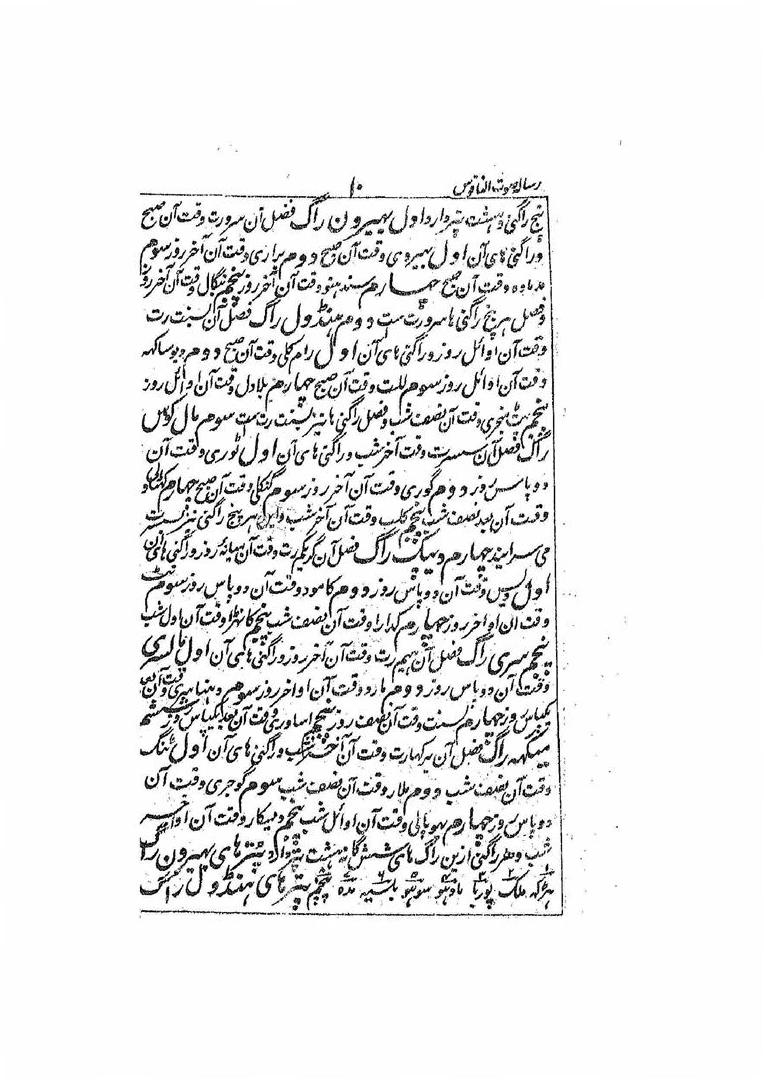 رساله صوت الناقوس ۱۰
پنج راگنی و هشت پتر دارد اول بهیرون راگ فصل آن سرورت وقت آن صبح
و راگنی های آن اول بهیروی وقت آن صبح دوهم براری وقت آن آخر روز سوهم
مدماده وقت آن صبح چهارهم سندهو وقت آن آخر روز پنجم بنگال وقت آن آخر روز
و فصل هر پنج راگنی ها سرورت ست دوهم هنڈول راگ فصل آن بسنت رت
وقت آن اوائل روز و راگنی های آن اول رام کلی وقت آن صبح دوهم دیوساکهه
وقت آن اوائل روز سوهم للت وقت آن صبح چهارهم بلاول وقت آن اوائل روز
پنجم پٹ منجری وقت آن نصف شب و فصل راگنی ها نیز بسنت رت ست سوهم مال کوس
راگ فصل آن وقت آخر شب و راگنی های آن اول ٹوری وقت آن
دو پاس روز دوهم گوری وقت آن آخر روز سوهم گنکلی وقت آن صبح چهارهم
وقت آن بعد نصف شب پنجم وقت آن آخر شب و این هر پنج راگنی نیز
می سرایند چهارهم دیپک راگ فصل آن گریکهم رت وقت آن میانه روز و راگنی های آن
اول دیس وقت آن دو پاس روز دوهم کامود وقت آن دو پاس روز سوهم نٹ
وقت آن اواخر روز چهارهم کدارا وقت آن نصف شب پنجم کانهڑا وقت آن اول شب
پنجم سری راگ فصل آن هیم رت وقت آن آخر روز و راگنی های آن اول مالسری
وقت آن دو پاس روز دوهم مارو وقت آن اواخر روز سوهم دهناسری وقت آن بعد
یکپاس روز چهارهم بسنت وقت آن نصف روز پنجم اساوری وقت آن بعد یکپاس روز ششم
میگهه راگ فصل آن برکهارت وقت آن آخر شب و راگنی های آن اول ٹنک
وقت آن نصف شب دوهم ملار وقت آن نصف شب سوهم گوجری وقت آن
دو پاس روز چهارهم بهوپالی وقت آن اوائل شب پنجم دیسکار وقت آن اواخر
شب و هر راگنی ازین راگ های ششگانه هشت پتر دارد پتر های بهیرون راگ
هرکهه تلک پوریا مادهو سوهو بلنیه مده پنجم پتر های هنڈول راگ